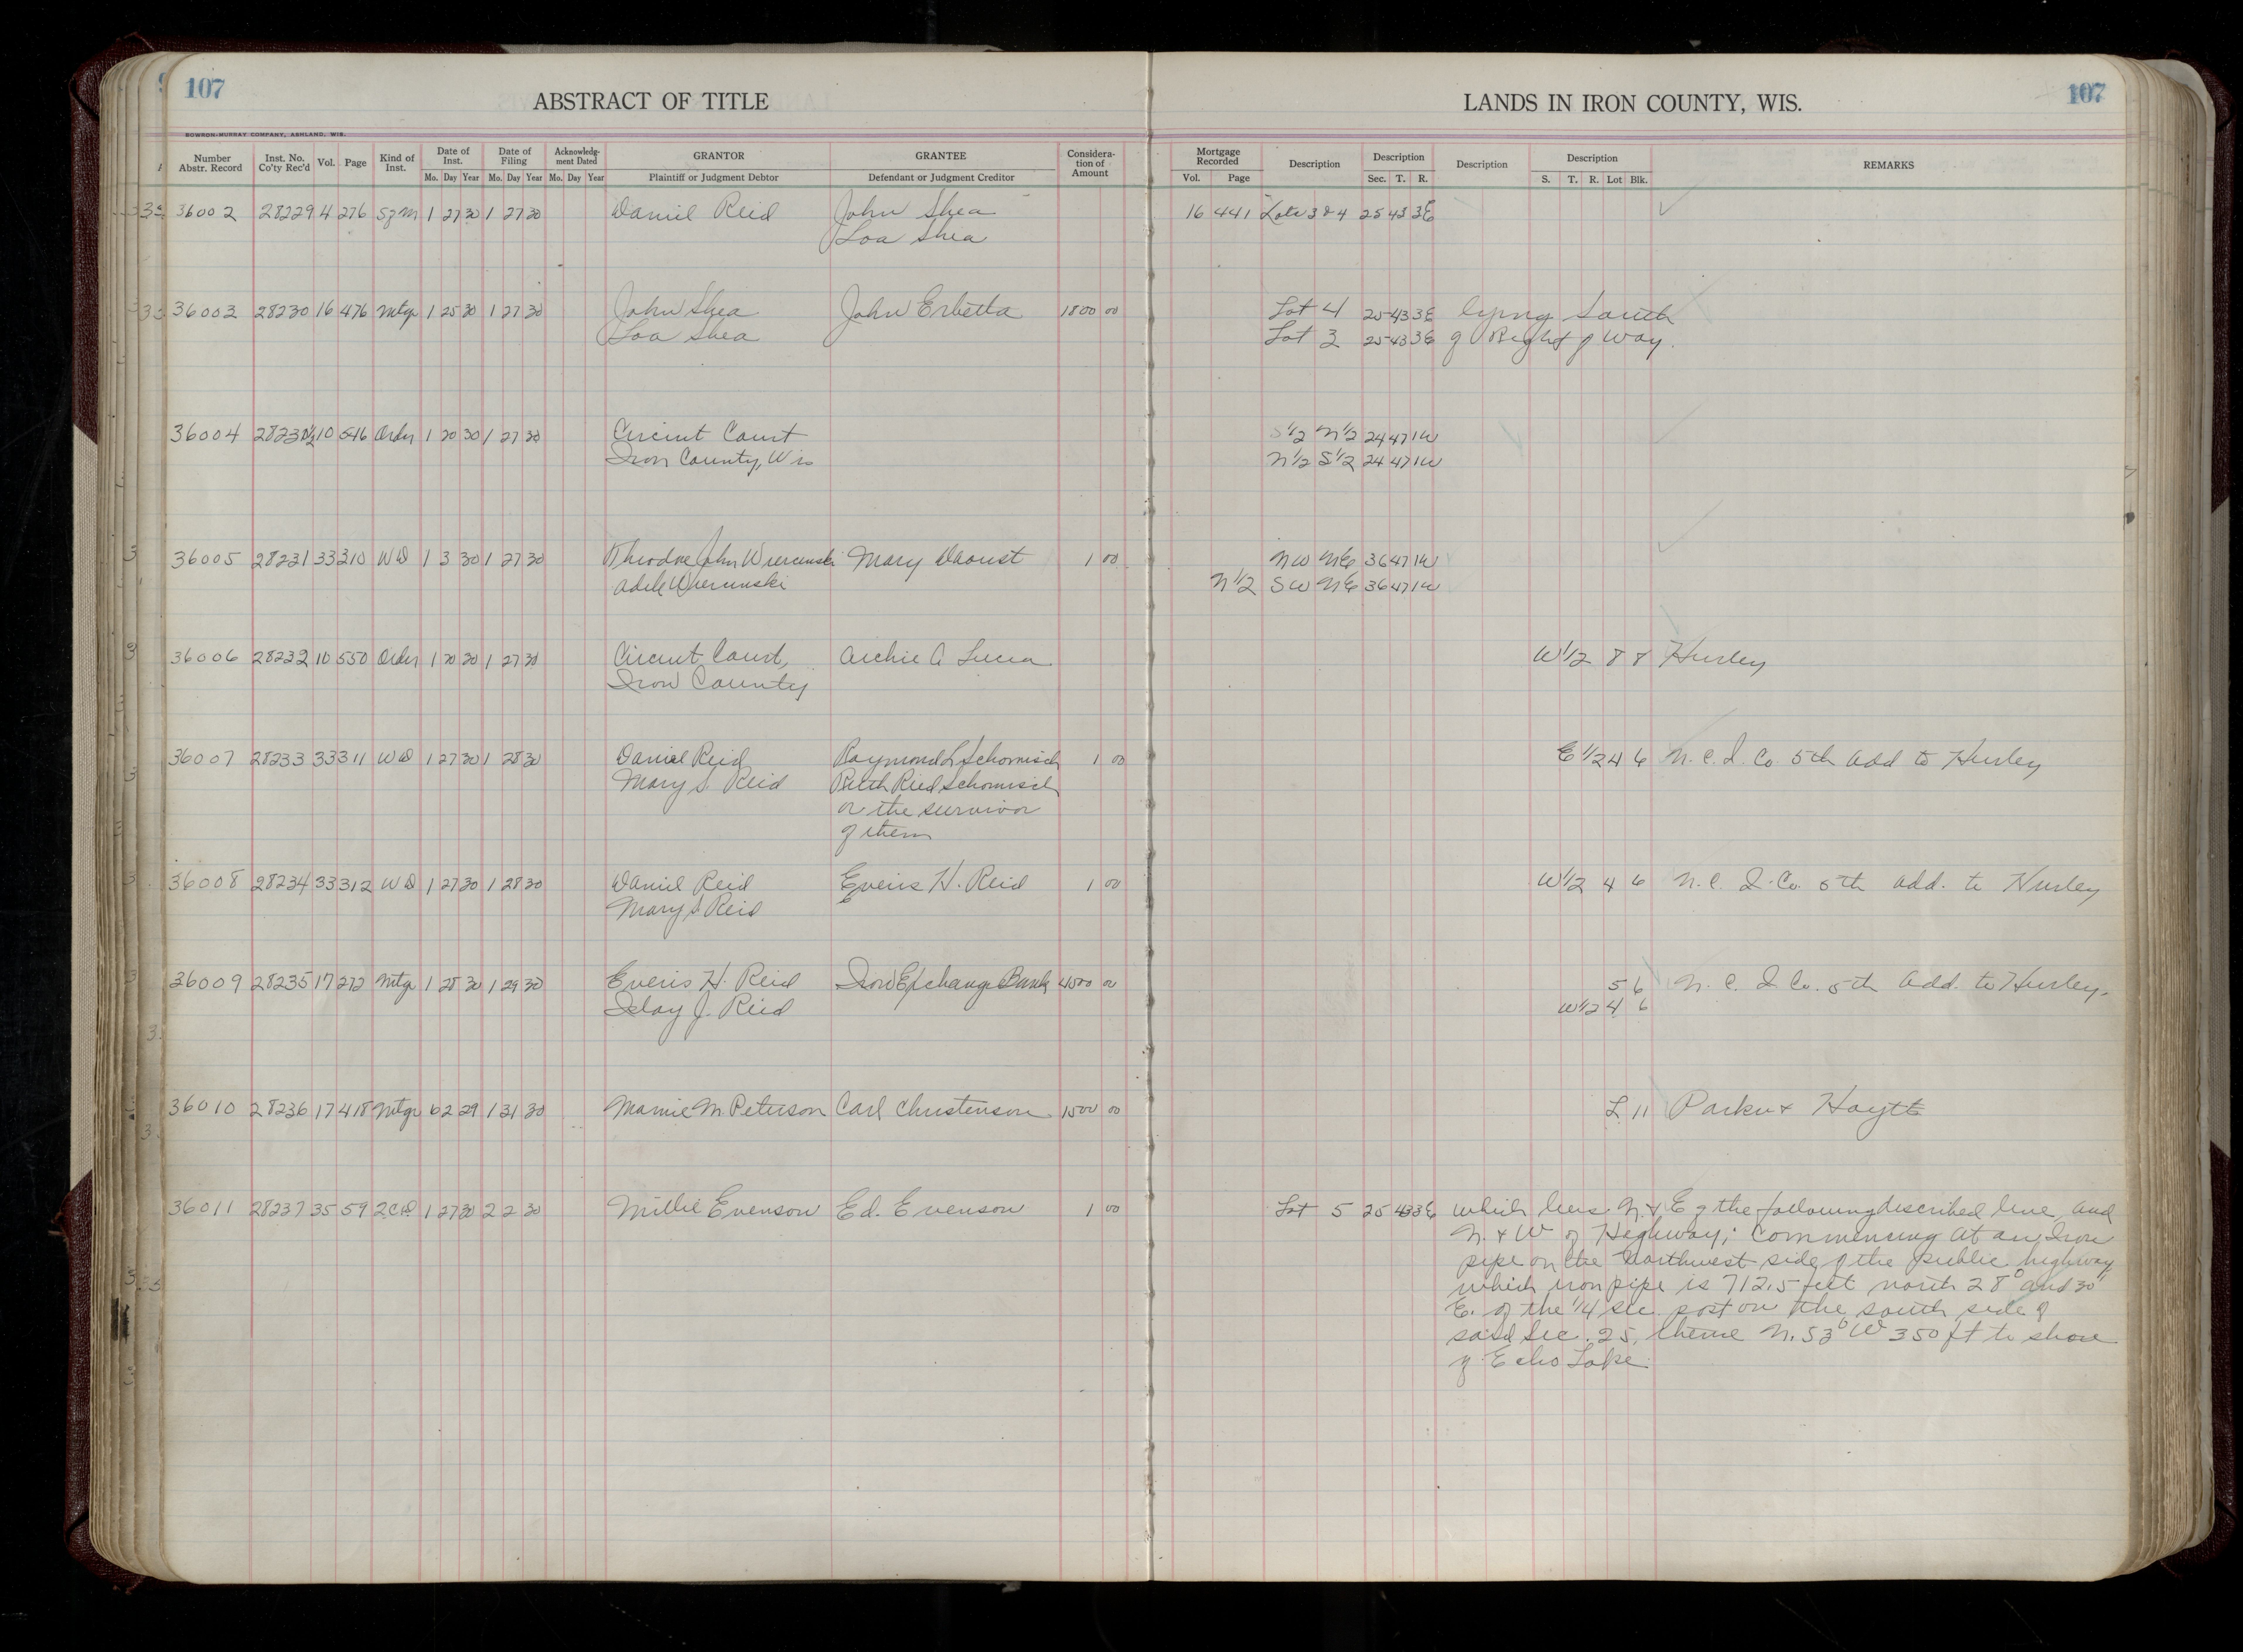 107
ABSTRACT OF TITLE
LANDS IN IRON COUNTY, WIS.
107
BOWRON-MURRAY COMPANY, ASHLAND, WIS.
Number Abstr. Record Inst. No. Co'ty Rec'd Vol. Page Kind of Inst. Date of Inst. Mo. Day Year Date of Filing Mo. Day Year Acknowledg-ment Dated Mo. Day Year GRANTOR Plaintiff or Judgment Debtor GRANTEE Defendant or Judgment Creditor Considera-tion of Amount Mortgage Recorded Vol. Page Description Description Sec. T. R. Description Description S. T. R. Lot Blk. REMARKS
36002 28229 4 276 1 27 30 1 27 30 Daniel Reid John Shea 16 441 Lots 3 & 4 25 43 3E
Loa Shea
36003 28230 16 476 Mtge 1 25 30 1 27 30 John Shea John Erbetta 1800 00 Lot 4 25 43 3E lying South
Loa Shea Lot 3 25 43 3E of Right of Way.
36004 28230½ 10 546 Order 1 20 30 1 27 30 Circuit Court S½ N½ 24 47 1W
Iron County, Wis N½ S½ 24 47 1W
36005 28231 33 310 WD 1 3 30 1 27 30 Theodore John Mary Daoust 1 00 NW NE 36 47 1W
Adele N½ SW NE 36 47 1W
36006 28232 10 550 Order 1 20 30 1 27 30 Circuit Court, Archie A Lucia W½ 8 8 Hurley
Iron County
36007 28233 33 311 WD 1 27 30 1 28 30 Daniel Reid Raymond L Schomisch 1 00 E½ 4 6 N. C. I. Co. 5th Add to Hurley
Mary S. Reid Ruth Ried Schomisch
or the survivor
of them
36008 28234 33 312 WD 1 27 30 1 28 30 Daniel Reid Everis H. Reid 1 00 W½ 4 6 N. C. I. Co. 5th Add. to Hurley
Mary S Reid
36009 28235 17 272 Mtge 1 28 30 1 29 30 Everis H. Reid Iron Exchange Bank 4500 00 5 6 N. C. I Co. 5th Add. to Hurley.
J. Reid W½ 4 6
36010 28236 17 418 Mtge 6 2 29 1 31 30 Mamie M. Peterson Carl Christenson 1500 00 L 11 Parker & Hoytt
36011 28237 35 59 QCD 1 27 30 2 2 30 Millie Evenson Ed. Evenson 1 00 Lot 5 25 43 3E which lies N. & E of the following described line and
N. & W of Highway; Commencing at an Iron
pipe on the Northwest side of the public highway
which iron pipe is 712.5 feet north 28° and 30"
E. of the 1/4 sec. post on the south side of
said Sec. 25, thence N. 53° W 350 ft to shore
of Echo Lake.